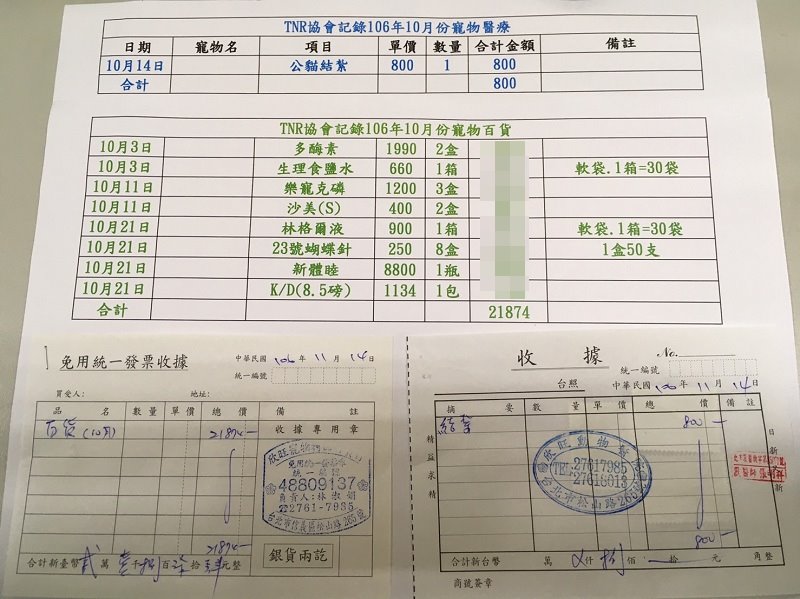 TNR協會記錄106年10月份寵物醫療
日期 寵物名 項目 單價 數量 合計金額 備註
10月14日 公貓結紮 800 1 800
合計 800
TNR協會記錄106年10月份寵物百貨
10月3日 多酶素 1990 2盒
10月3日 生理食鹽水 660 1箱 軟袋.1箱=30袋
10月11日 樂寵克磷 1200 3盒
10月11日 沙美(S) 400 2盒
10月21日 林格爾液 900 1箱 軟袋.1箱=30袋
10月21日 23號蝴蝶針 250 8盒 1盒50支
10月21日 新體睦 8800 1瓶
10月21日 K/D(8.5磅) 1134 1包
合計 21874
免用統一發票收據
中華民國 106 年 11 月 14 日
統一編號
買受人: 地址:
品名 數量 單價 總價 備註
百貨(10月) 21874-
收據專用章
欣旺寵物
免用統一發票
統一編號
48809137
負責人:林淑娟
☎2761-7985
台北市信義區松山路265號
21874-
合計新臺幣 貳 萬 壹 千 捌 百 柒 拾 肆 元整
銀貨兩訖
收據
No.
統一編號
台照 中華民國 106 年 11 月 14 日
摘要 數量 單價 總價 備註
結紮 800-
精益求精
日新又新
欣旺動物醫院
TEL 27617985
27618013
台北市松山路265號
800-
合計新台幣 萬 仟 捌 佰 拾 元 角整
商號簽章